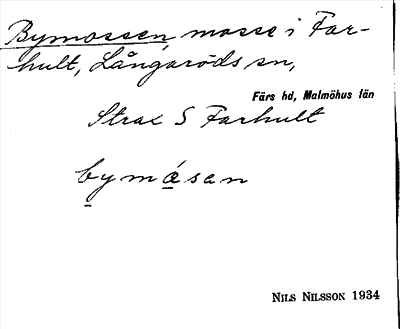 Bymossen, mosse i Far-
hult, Långaröds sn,
Färs hd, Malmöhus län
Strax S Farhult
bymåsan
NILS NILSSON 1934